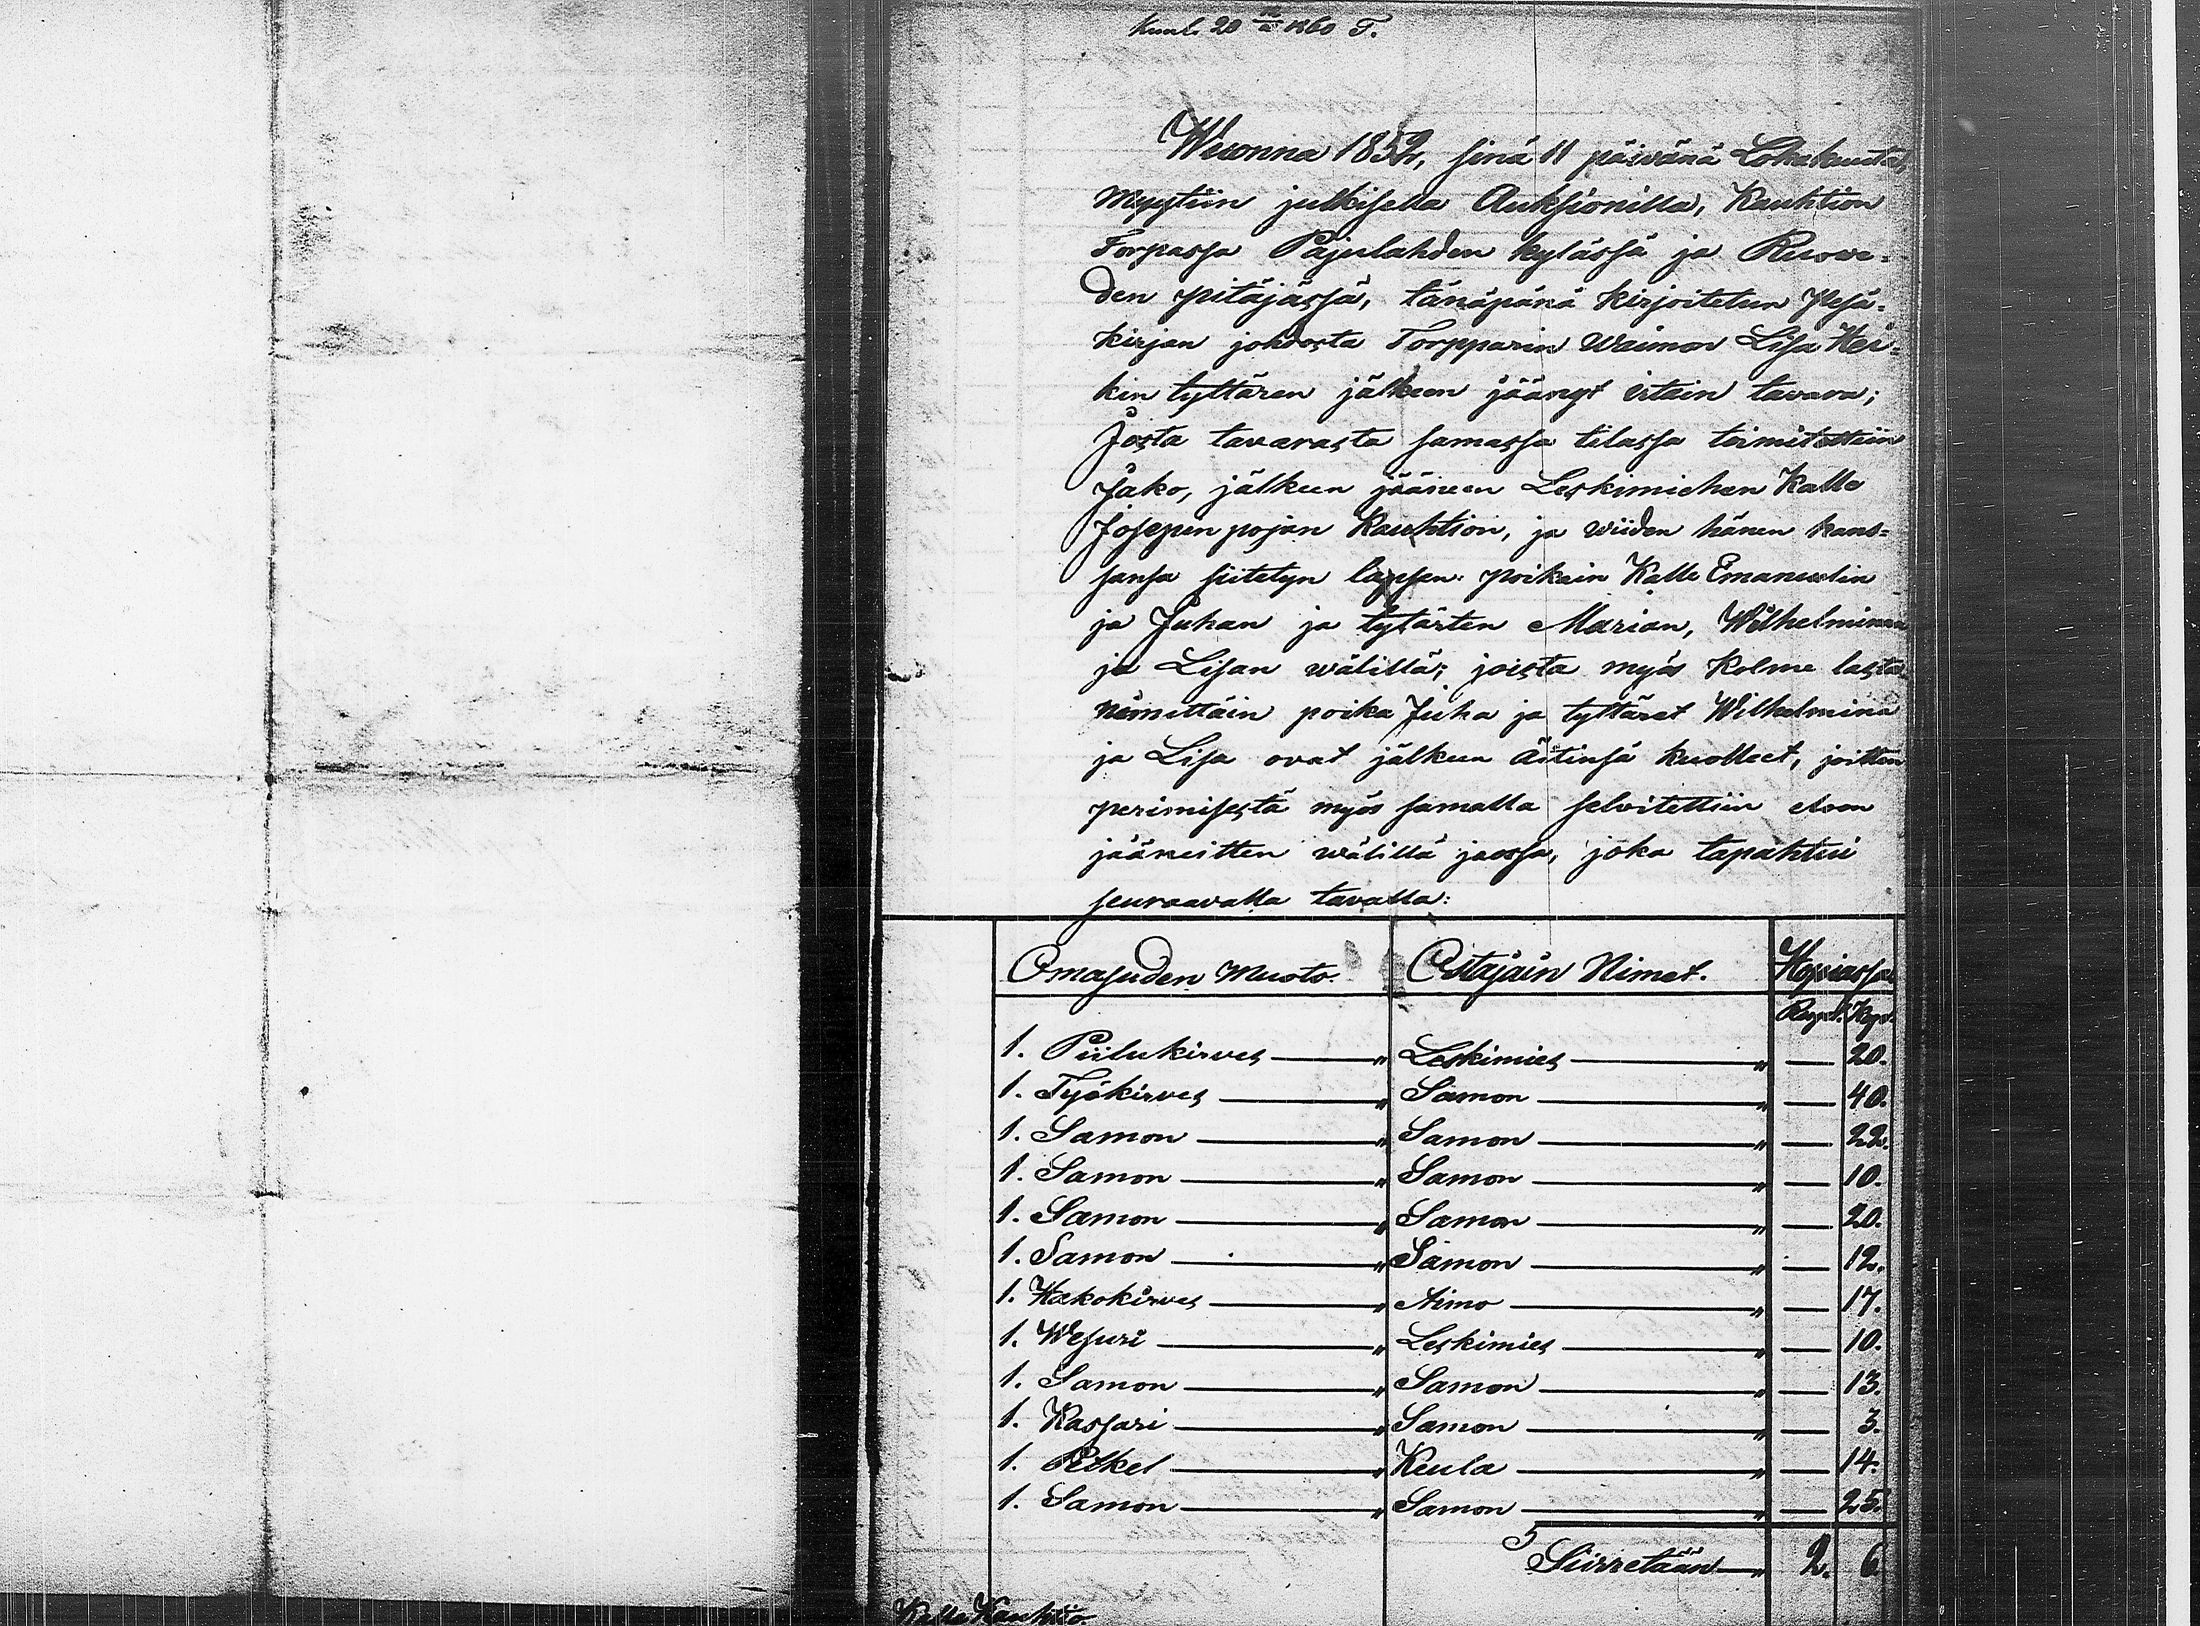 Kuul. 20 12/11 1860 T.
Wuonna 1852, sinä 11 päivänä Lokakuuta,
Myytiin julkisella Auksionilla, Kauhtion
Torpassa Pajulahden kylässä ja Ruove-
den pitäjässä, tänäpänä kirjoitetun Pesä-
kirjan johdosta Torpparin Waimon Lisa Hei-
kin tyttären jälkeen jäänyt irtain tavara;
Josta tavarasta samassa tilassa toimitettiin
Jako, jälkeen jääneen Leskimiehen Kalle
Josepin pojan Kauhtion, ja wiiden hänen kans-
sansa siitetyn lapsen: poikain Kalle Emanuelin
ja Juhan ja tytärten Marian, Wilhelminan
ja Lisan wälillä; joista myös Kolme lasta
nämittäin poika Juha ja tyttäret Wilhelmina
ja Lisa ovat jälkeen Äitinsä kuolleet, joitten
perimisestä myös samalla selvitettiin eloon
jääneitten wälillä jaossa, joka tapahtui
seuraavalla tavalla:
Omasuden Muoto. Ostajain Nimet. Hopiassa
Rupl. Kop.
1. Piilukirves — „ Leskimies — „ — 20.
1. Työkirves — „ Samon — „ — 40.
1. Samon — „ Samon — „ — 22.
1. Samon — „ Samon — „ — 10.
1. Samon — „ Samon — „ — 20.
1. Samon — „ Samon — „ — 12.
1. Hakokirves — „ Aimo — „ — 17.
1. Wesuri — „ Leskimies — „ — 10.
1. Samon — „ Samon — „ — 13.
1. Kassari — „ Samon — „ — 3.
1. Petkel — „ Keula — „ — 14.
1. Samon — „ Samon — „ — 25.
Siirretään — „ 2. 6.
Kalle Kauhtio.